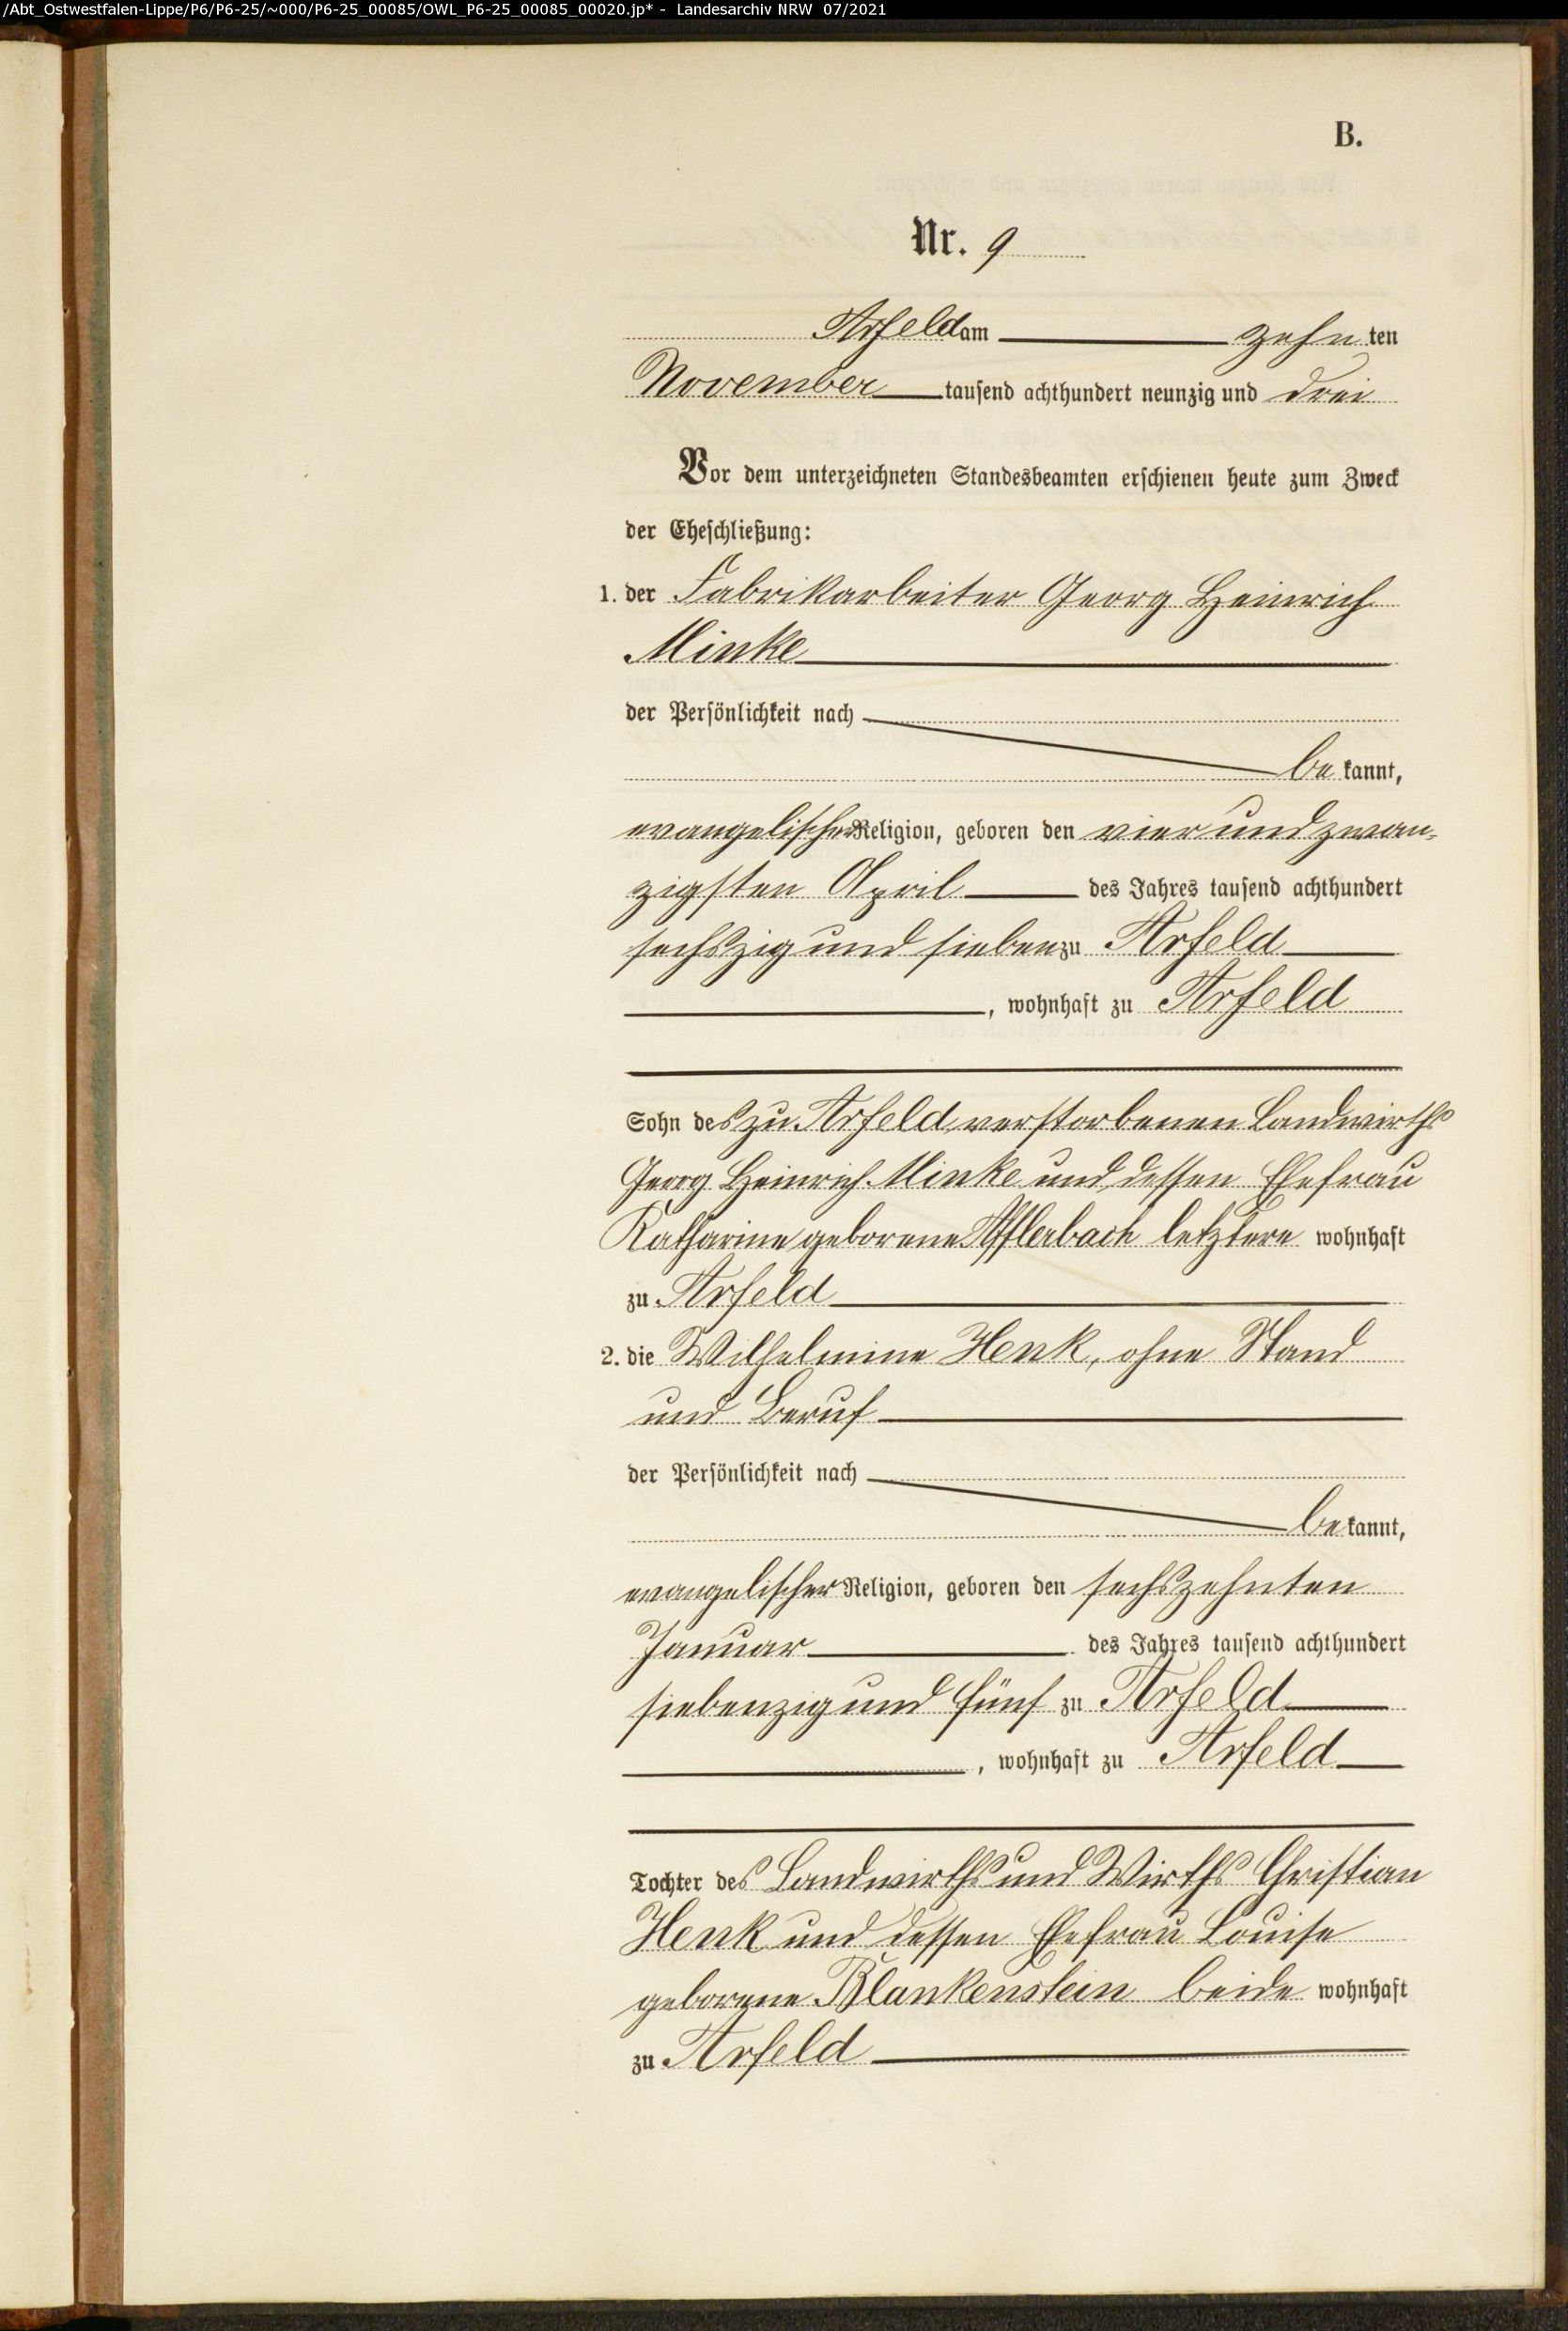 /Abt_Ostwestfalen-Lippe/P6/P6-25/~000/P6-25_00085/OWL_P6-25_00085_00020.jp* - Landesarchiv NRW 07/2021
B.
Nr. 9
Arfeld am zehnten
November tausend achthundert neunzig und drei
Vor dem unterzeichneten Standesbeamten erschienen heute zum Zweck
der Eheschließung:
1. der Fabrikarbeiter Georg Heinrich
Minke
der Persönlichkeit nach
bekannt,
evangelischer Religion, geboren den vier und zwan-
zigsten April des Jahres tausend achthundert
sechszig und sieben zu Arfeld
, wohnhaft zu Arfeld
Sohn des zu Arfeld verstorbenen Landwirths
Georg Heinrich Minke und dessen Ehefrau
Katharine geborene Afflerbach letztere wohnhaft
zu Arfeld
2. die Wilhelmine Henk, ohne Stand
und Beruf
der Persönlichkeit nach
bekannt,
evangelischer Religion, geboren den sechszehnten
Januar des Jahres tausend achthundert
siebenzig und fünf zu Arfeld
, wohnhaft zu Arfeld
Tochter des Landwirths und Wirths Christian
Henk und dessen Ehefrau Louise
geborene Blankenstein beide wohnhaft
zu Arfeld